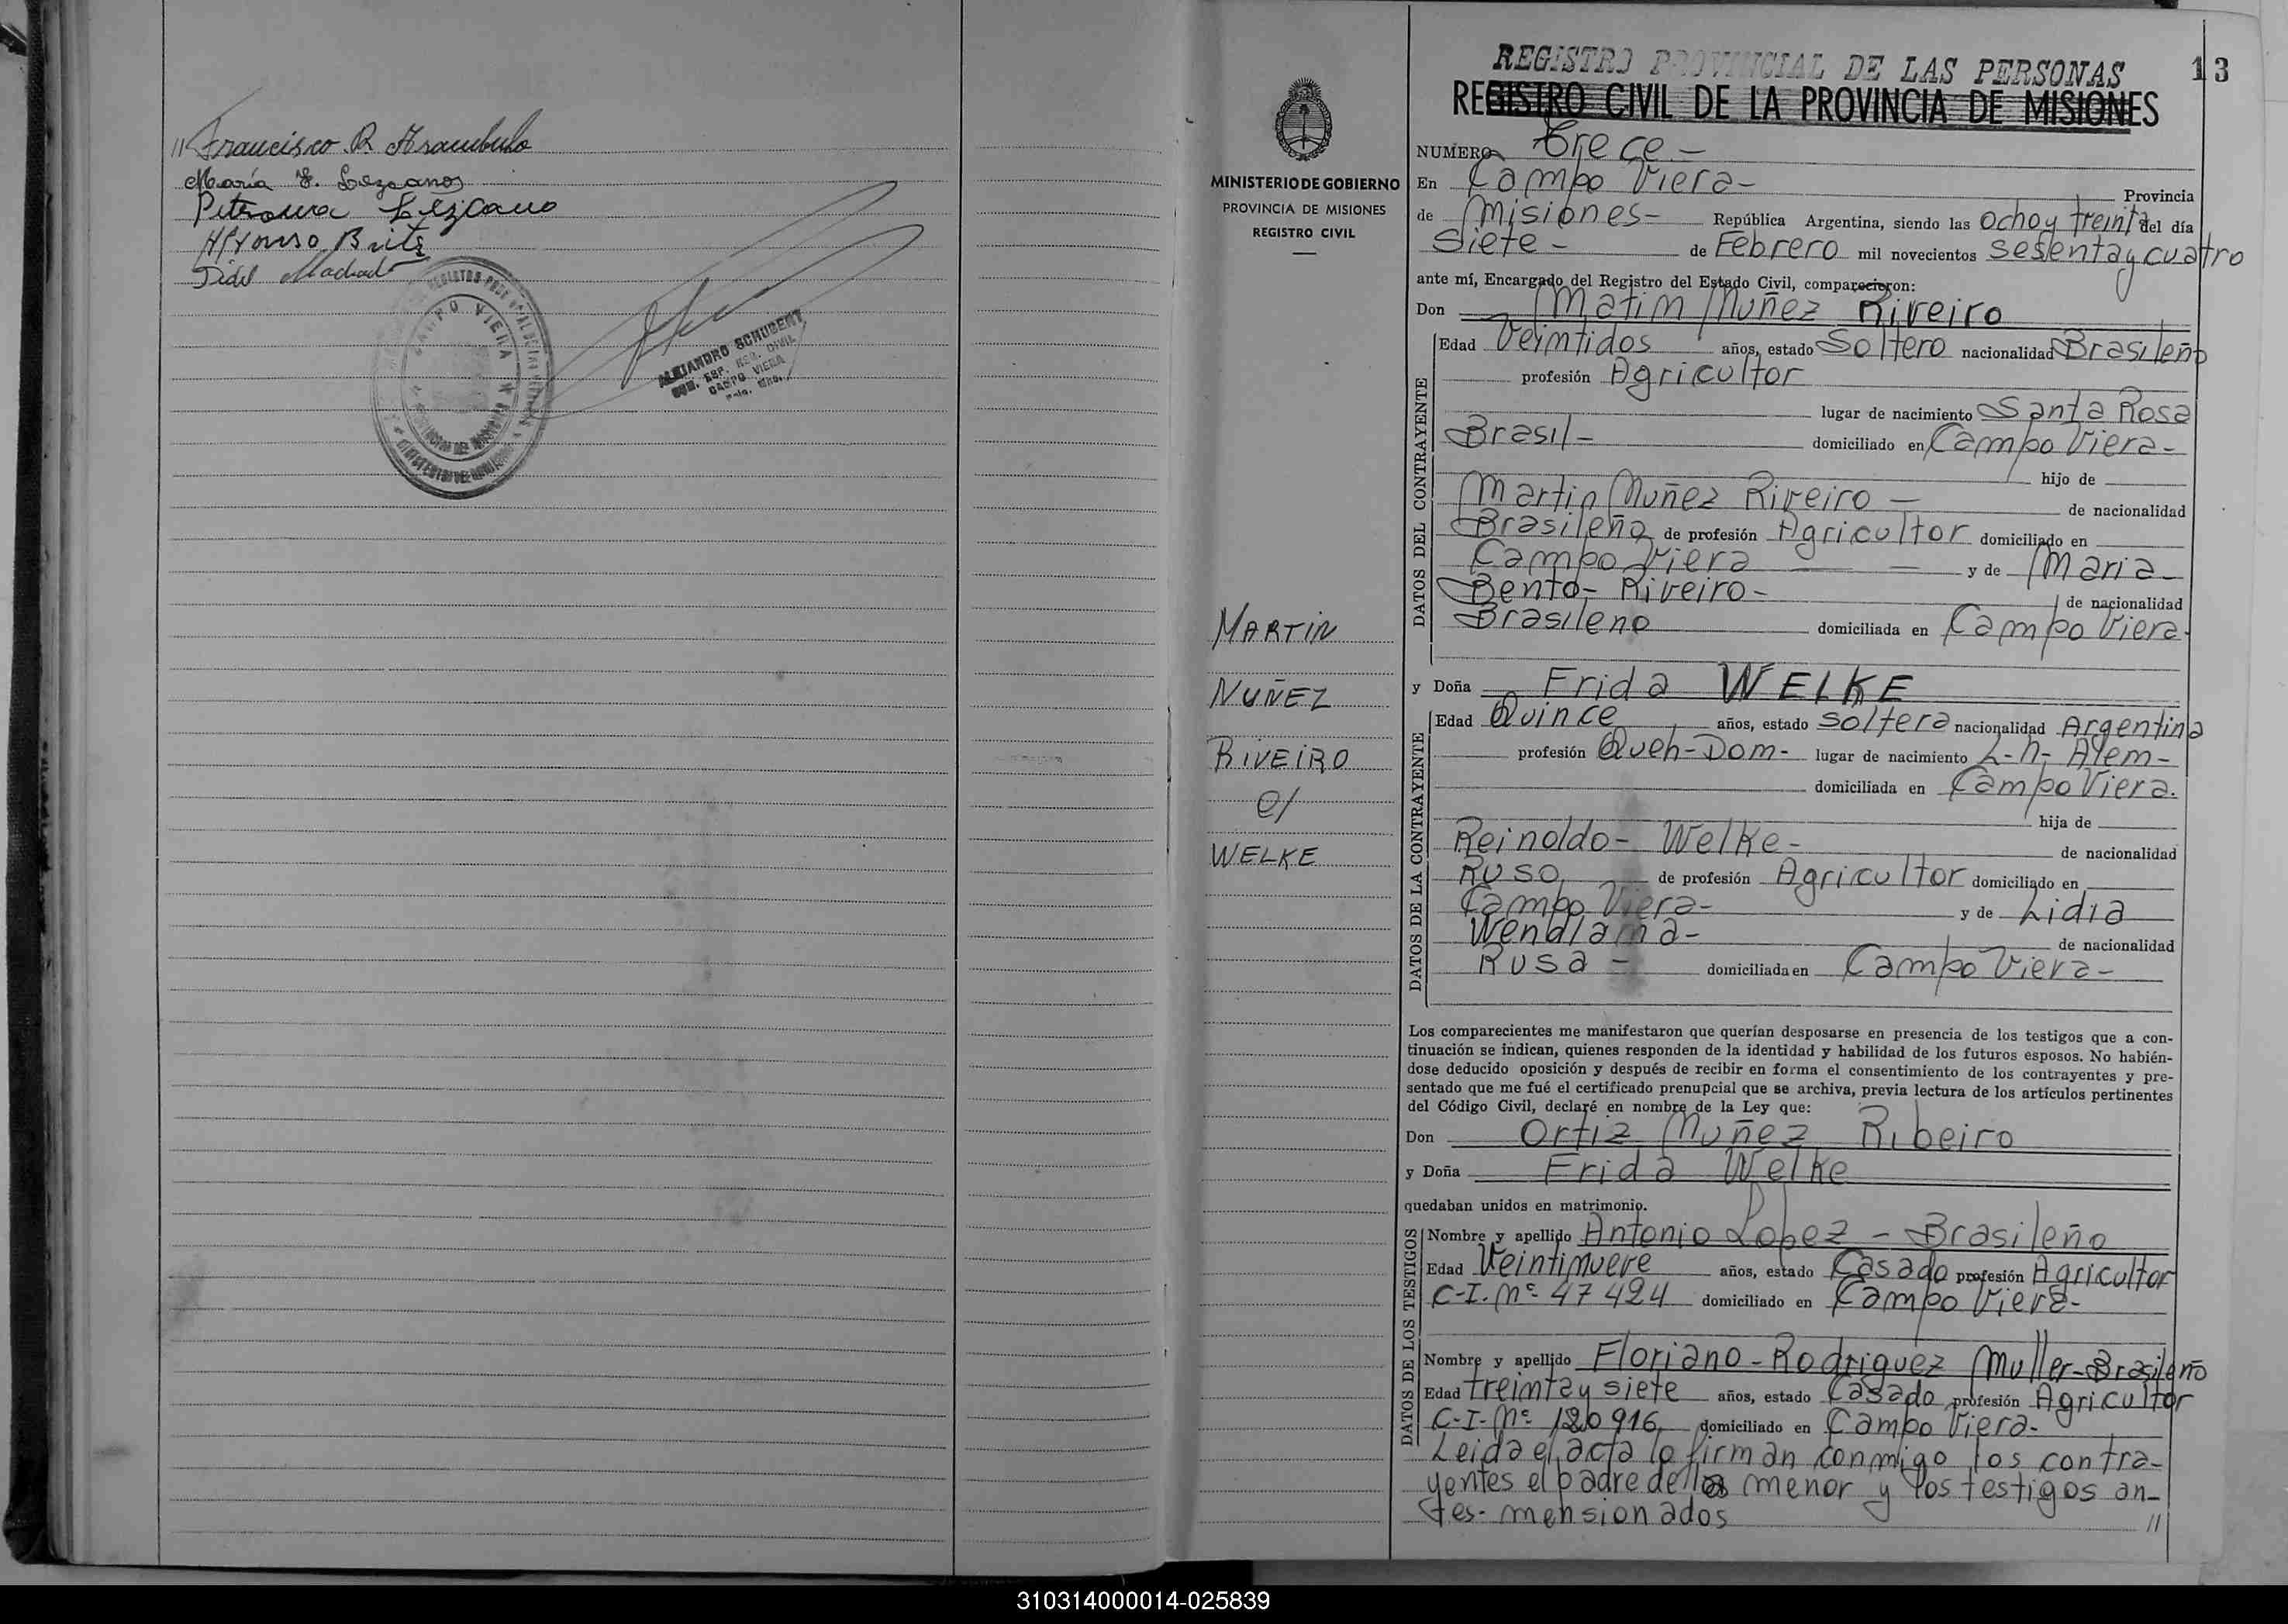 // Francisco R Arambulo
María E. Lezcano
Petrona Lezcano
Alfonso Britz
Fidel Machado
CAMPO VIERA
ALEJANDRO SCHUBERT
CAMPO VIERA
REGISTRO PROVINCIAL DE LAS PERSONAS
13
REGISTRO CIVIL DE LA PROVINCIA DE MISIONES
MINISTERIO DE GOBIERNO
PROVINCIA DE MISIONES
REGISTRO CIVIL
MARTIN
NUÑEZ
RIVEIRO
c/
WELKE
NUMERO Trece-
En Campo Viera- Provincia
de Misiones- República Argentina, siendo las Ocho y treinta del día
Siete- de Febrero mil novecientos sesenta y cuatro
ante mí, Encargado del Registro del Estado Civil, comparecieron:
Don Matim Nuñez Riveiro
DATOS DEL CONTRAYENTE
Edad Veimtidos años, estado Soltero nacionalidad Brasileño
profesión Agricultor
lugar de nacimiento Santa Rosa
Brasil- domiciliado en Campo Viera-
hijo de
Martin Nuñez Riveiro - de nacionalidad
Brasileña de profesión Agricultor domiciliado en
Campo Viera y de Maria-
Bento- Riveiro- de nacionalidad
Brasileno domiciliada en Campo Viera.
y Doña Frida WELKE
DATOS DE LA CONTRAYENTE
Edad Quince años, estado soltera nacionalidad Argentina
profesión Queh-Dom- lugar de nacimiento L-n- Alem-
domiciliada en Campo Viera.
hija de
Reinoldo- Welke- de nacionalidad
Ruso de profesión Agricultor domiciliado en
Campo Viera- y de Lidia
Wendlama- de nacionalidad
Rusa - domiciliada en Campo Viera-
Los comparecientes me manifestaron que querían desposarse en presencia de los testigos que a con-
tinuación se indican, quienes responden de la identidad y habilidad de los futuros esposos. No habién-
dose deducido oposición y después de recibir en forma el consentimiento de los contrayentes y pre-
sentado que me fué el certificado prenupcial que se archiva, previa lectura de los artículos pertinentes
del Código Civil, declaré en nombre de la Ley que:
Don Ortiz Nuñez Ribeiro
y Doña Frida Welke
quedaban unidos en matrimonio.
DATOS DE LOS TESTIGOS
Nombre y apellido Antonio Lopez - Brasileño
Edad Veintinueve años, estado Casado profesión Agricultor
C-I. Nº 47424 domiciliado en Campo Viera-
Nombre y apellido Floriano-Rodriguez Muller-Brasileño
Edad treimta y siete años, estado Casado profesión Agricultor
C-I-Nº 120916 domiciliado en Campo Viera-
Leida el acta lo firman conmigo los contra-
yentes el padre de la menor y los testigos an-
tes- mensionados //
310314000014-025839